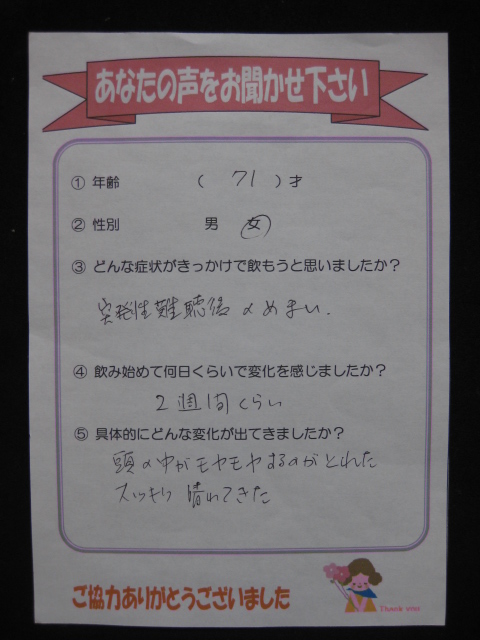 あなたの声をお聞かせ下さい
① 年齢 ( 71 ) 才
② 性別 男 女
③ どんな症状がきっかけで飲もうと思いましたか?
突発性難聴後のめまい.
④ 飲み始めて何日くらいで変化を感じましたか?
2週間くらい
⑤ 具体的にどんな変化が出てきましたか?
頭の中がモヤモヤするのがとれた
スッキリ晴れてきた
ご協力ありがとうございました
Thank you